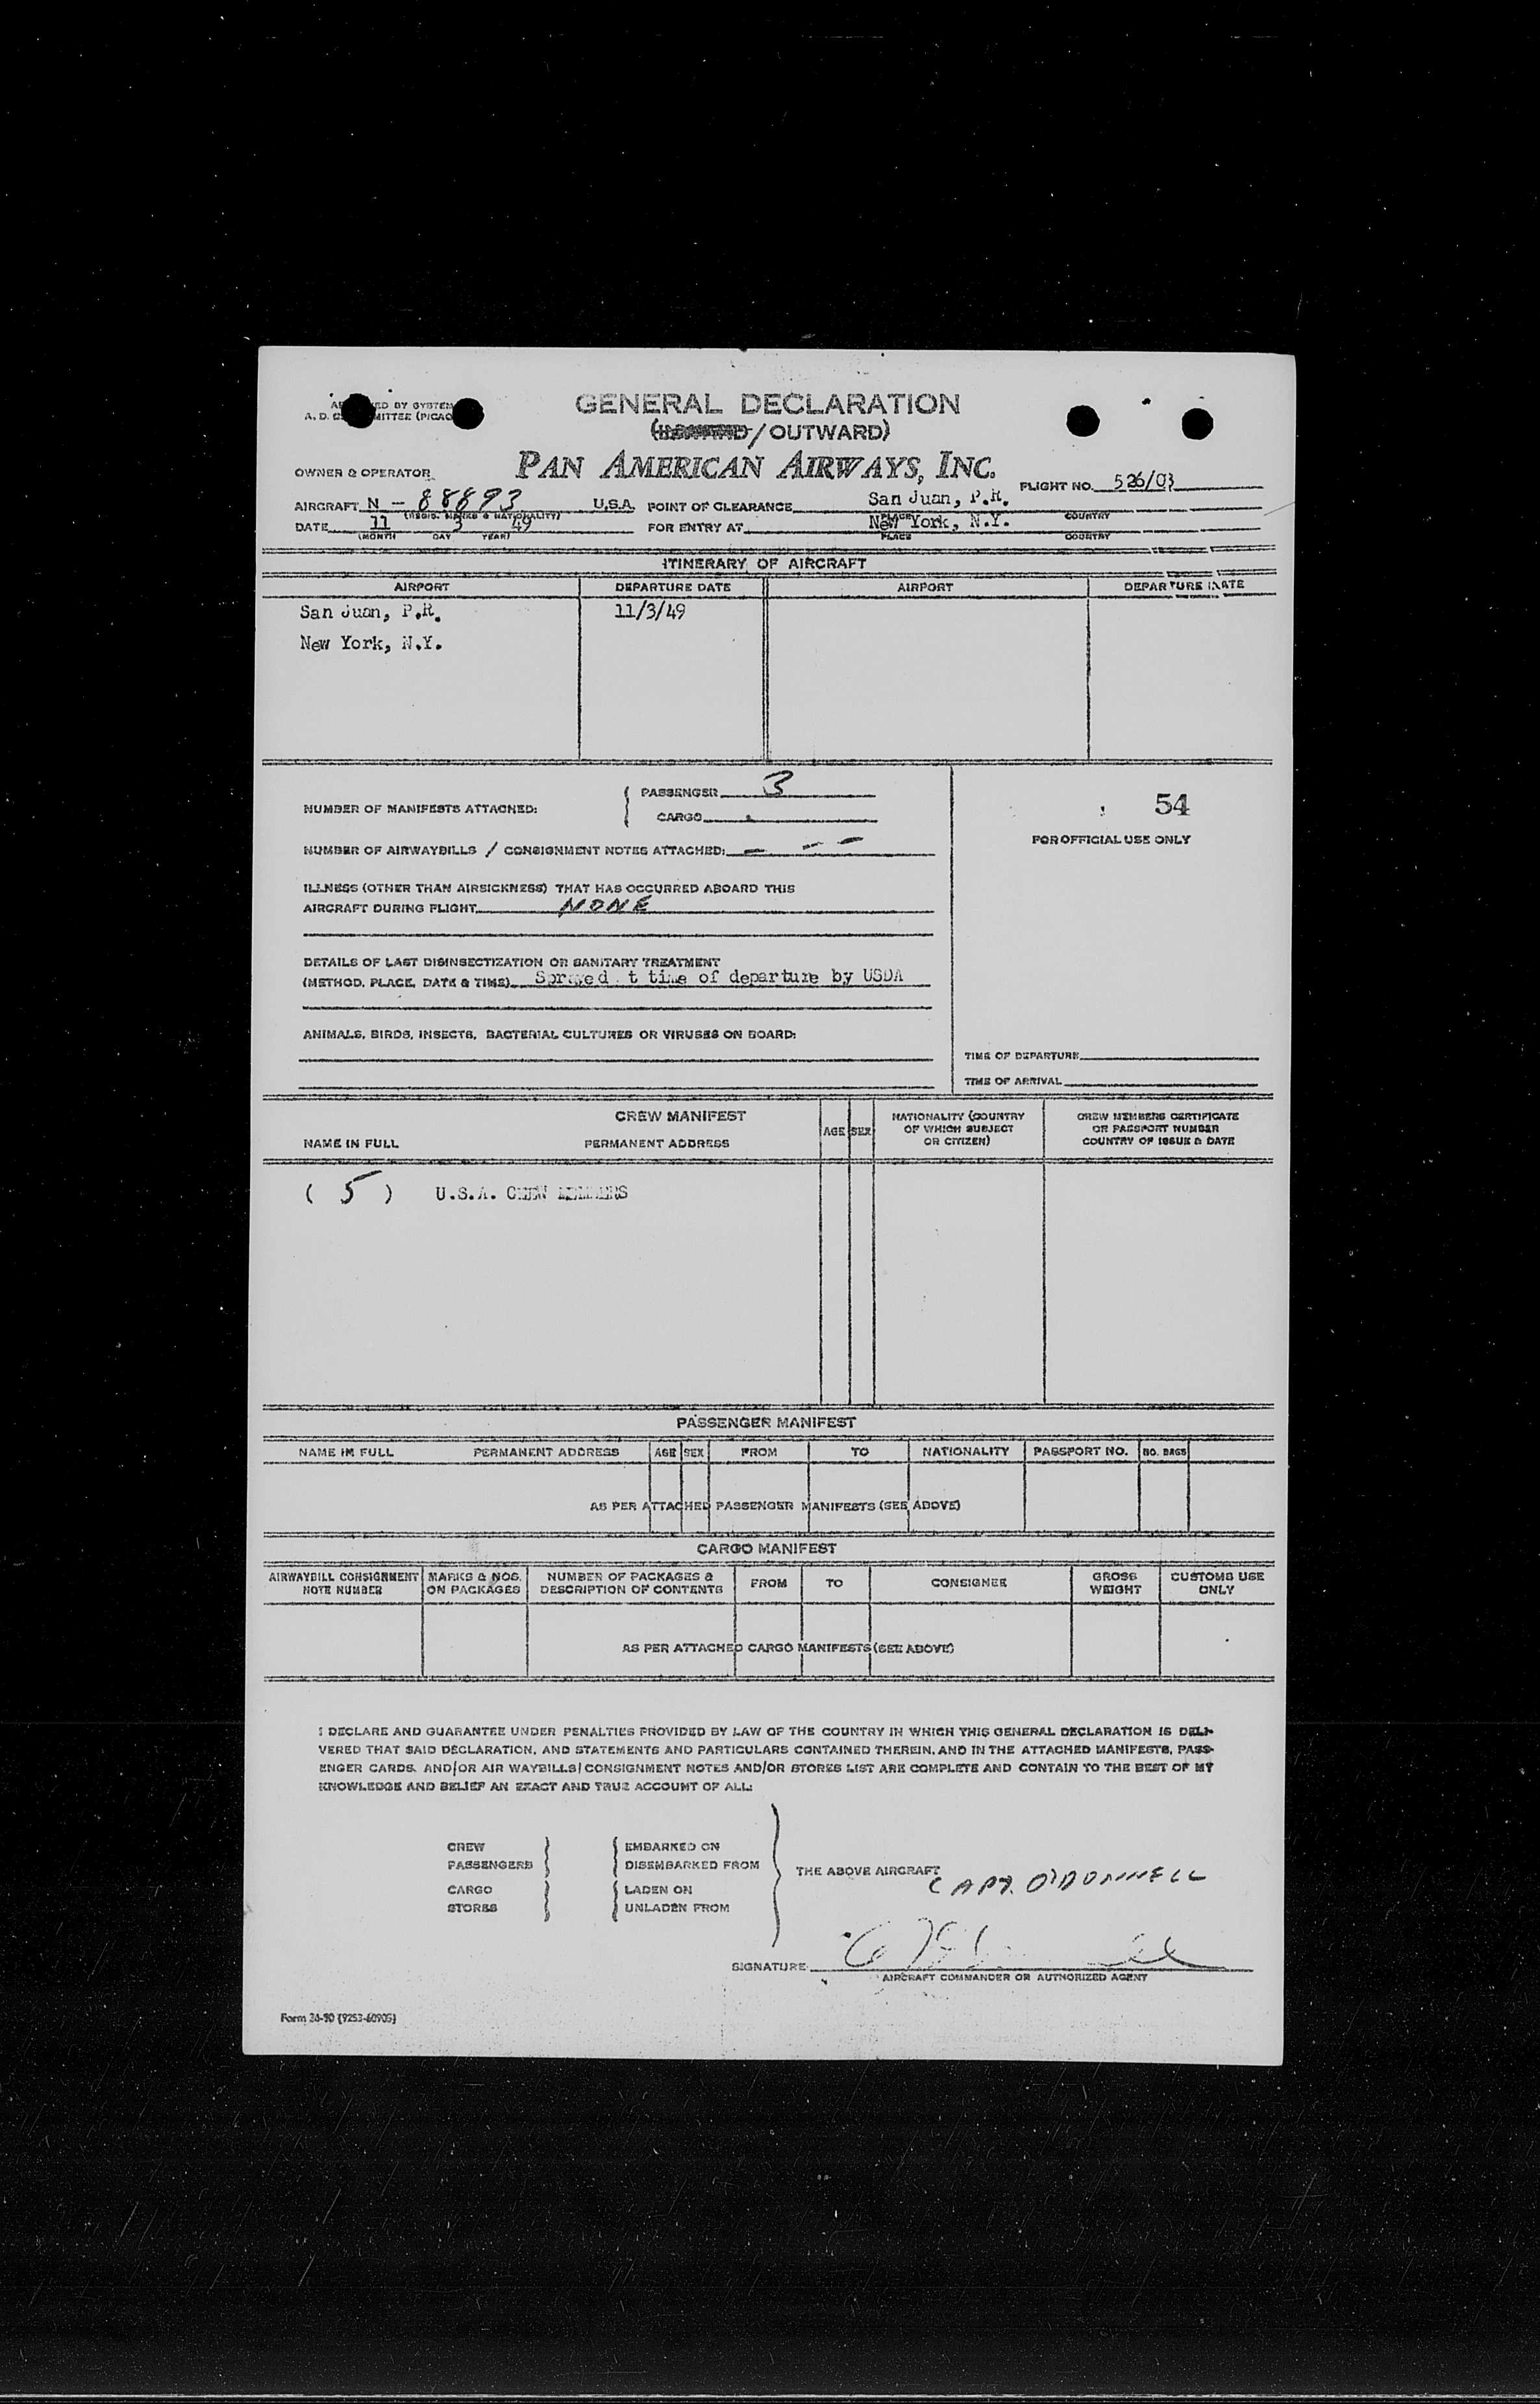 GENERAL DECLARATION
/ OUTWARD)
OWNER & OPERATOR PAN AMERICAN AIRWAYS, INC.
FLIGHT NO. 526/03
AIRCRAFT N - 88893 U.S.A. POINT OF CLEARANCE San Juan, P.R.
(REGIS. MARKS & NATIONALITY) PLACE COUNTRY
DATE 11 3 49 FOR ENTRY AT New York, N.Y.
(MONTH DAY YEAR) PLACE COUNTRY
ITINERARY OF AIRCRAFT
AIRPORT DEPARTURE DATE AIRPORT DEPARTURE DATE
San Juan, P.R. 11/3/49
New York, N.Y.
NUMBER OF MANIFESTS ATTACHED: PASSENGER 3
CARGO
54
FOR OFFICIAL USE ONLY
NUMBER OF AIRWAYBILLS / CONSIGNMENT NOTES ATTACHED: - - -
ILLNESS (OTHER THAN AIRSICKNESS) THAT HAS OCCURRED ABOARD THIS
AIRCRAFT DURING FLIGHT NONE
DETAILS OF LAST DISINSECTIZATION OR SANITARY TREATMENT
(METHOD, PLACE, DATE & TIME) Sprayed t time of departure by USDA
ANIMALS, BIRDS, INSECTS, BACTERIAL CULTURES OR VIRUSES ON BOARD:
TIME OF DEPARTURE
TIME OF ARRIVAL
CREW MANIFEST
NAME IN FULL PERMANENT ADDRESS AGE SEX NATIONALITY (COUNTRY OF WHICH SUBJECT OR CITIZEN) CREW MEMBERS CERTIFICATE OR PASSPORT NUMBER COUNTRY OF ISSUE & DATE
( 5 ) U.S.A. CREW MEMBERS
PASSENGER MANIFEST
NAME IN FULL PERMANENT ADDRESS AGE SEX FROM TO NATIONALITY PASSPORT NO. NO. BAGS
AS PER ATTACHED PASSENGER MANIFESTS (SEE ABOVE)
CARGO MANIFEST
AIRWAYBILL CONSIGNMENT NOTE NUMBER MARKS & NOS. ON PACKAGES NUMBER OF PACKAGES & DESCRIPTION OF CONTENTS FROM TO CONSIGNEE GROSS WEIGHT CUSTOMS USE ONLY
AS PER ATTACHED CARGO MANIFESTS (SEE ABOVE)
I DECLARE AND GUARANTEE UNDER PENALTIES PROVIDED BY LAW OF THE COUNTRY IN WHICH THIS GENERAL DECLARATION IS DELI-
VERED THAT SAID DECLARATION, AND STATEMENTS AND PARTICULARS CONTAINED THEREIN, AND IN THE ATTACHED MANIFESTS, PASS-
ENGER CARDS, AND/OR AIR WAYBILLS/CONSIGNMENT NOTES AND/OR STORES LIST ARE COMPLETE AND CONTAIN TO THE BEST OF MY
KNOWLEDGE AND BELIEF AN EXACT AND TRUE ACCOUNT OF ALL:
CREW EMBARKED ON
PASSENGERS DISEMBARKED FROM
THE ABOVE AIRCRAFT CAPT. O'DONNELL
CARGO LADEN ON
STORES UNLADEN FROM
SIGNATURE
AIRCRAFT COMMANDER OR AUTHORIZED AGENT
Form 24-90 (9253-60905)